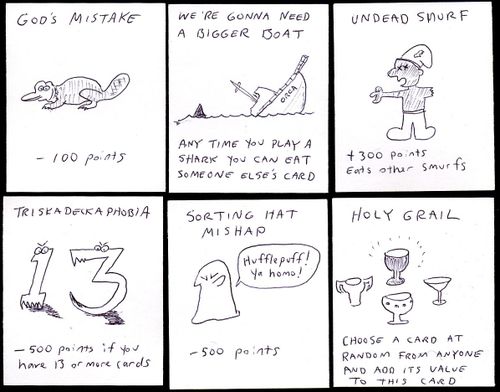 GOD'S MISTAKE
- 100 points
WE'RE GONNA NEED
A BIGGER BOAT
ORCA
ANY TIME YOU PLAY A
SHARK YOU CAN EAT
SOMEONE ELSE'S CARD
UNDEAD SMURF
+300 points
Eats other smurfs
TRISKADEKAPHOBIA
13
-500 points if you
have 13 or more cards
SORTING HAT
MISHAP
Hufflepuff!
Ya homo!
-500 points
HOLY GRAIL
CHOOSE A CARD AT
RANDOM FROM ANYONE
AND ADD ITS VALUE
TO THIS CARD